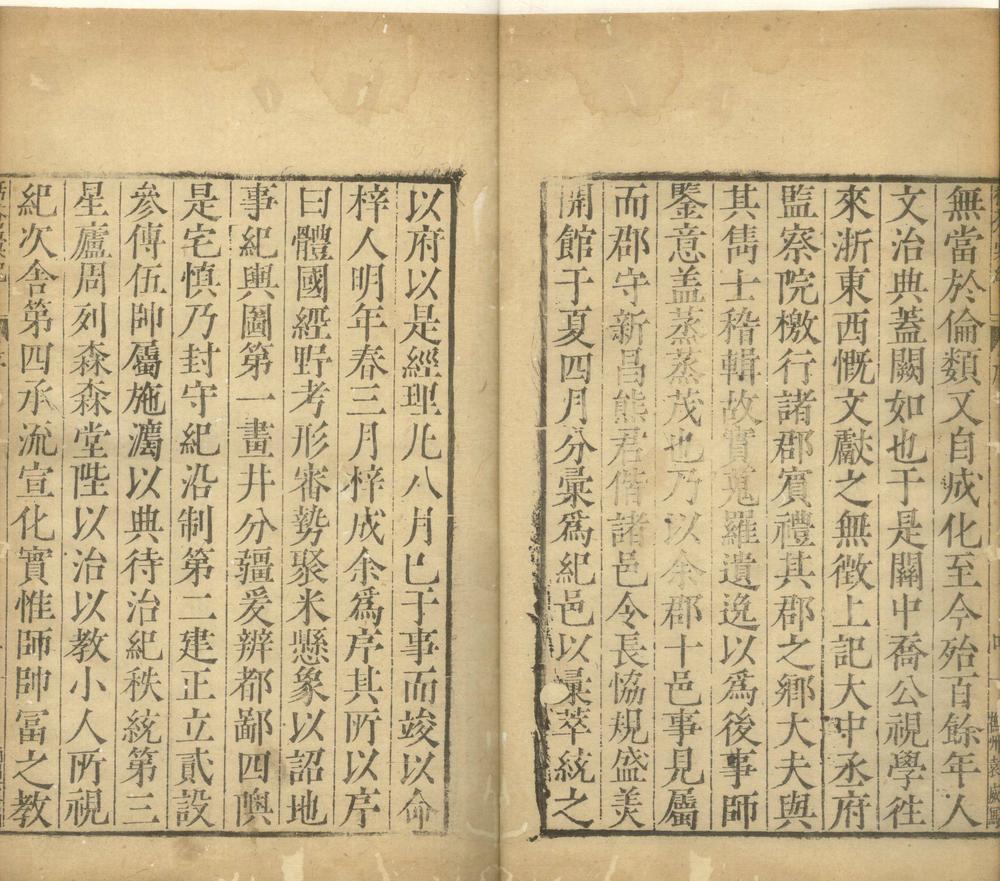 無當於倫類又自成化至今殆百餘年人
文治典蓋闕如也于是關中喬公視學徃
來浙東西慨文獻之無徴上記大中丞府
監察院檄行諸郡賓禮其郡之鄉大夫與
其雋士稽輯故實蒐羅遺逸以為後事師
鑒意盖蒸蒸茂也乃以余郡十邑事見屬
而郡守新昌熊君偕諸邑令長恊規盛美
開館于夏四月分彙爲紀邑以彙萃統之
以府以是經理凡八月巳于事而竣以命
梓人明年春三月梓成余爲序其所以序
曰體國經野考形審勢聚米懸象以詔地
事紀輿圖第一畫井分疆爰辨都鄙四輿
是宅慎乃封守紀沿制第二建正立貳設
參傅伍帥屬施灋以典待治紀秩統第三
星廬周列森森堂陛以治以教小人所視
紀次舍第四承流宣化實惟師帥冨之教